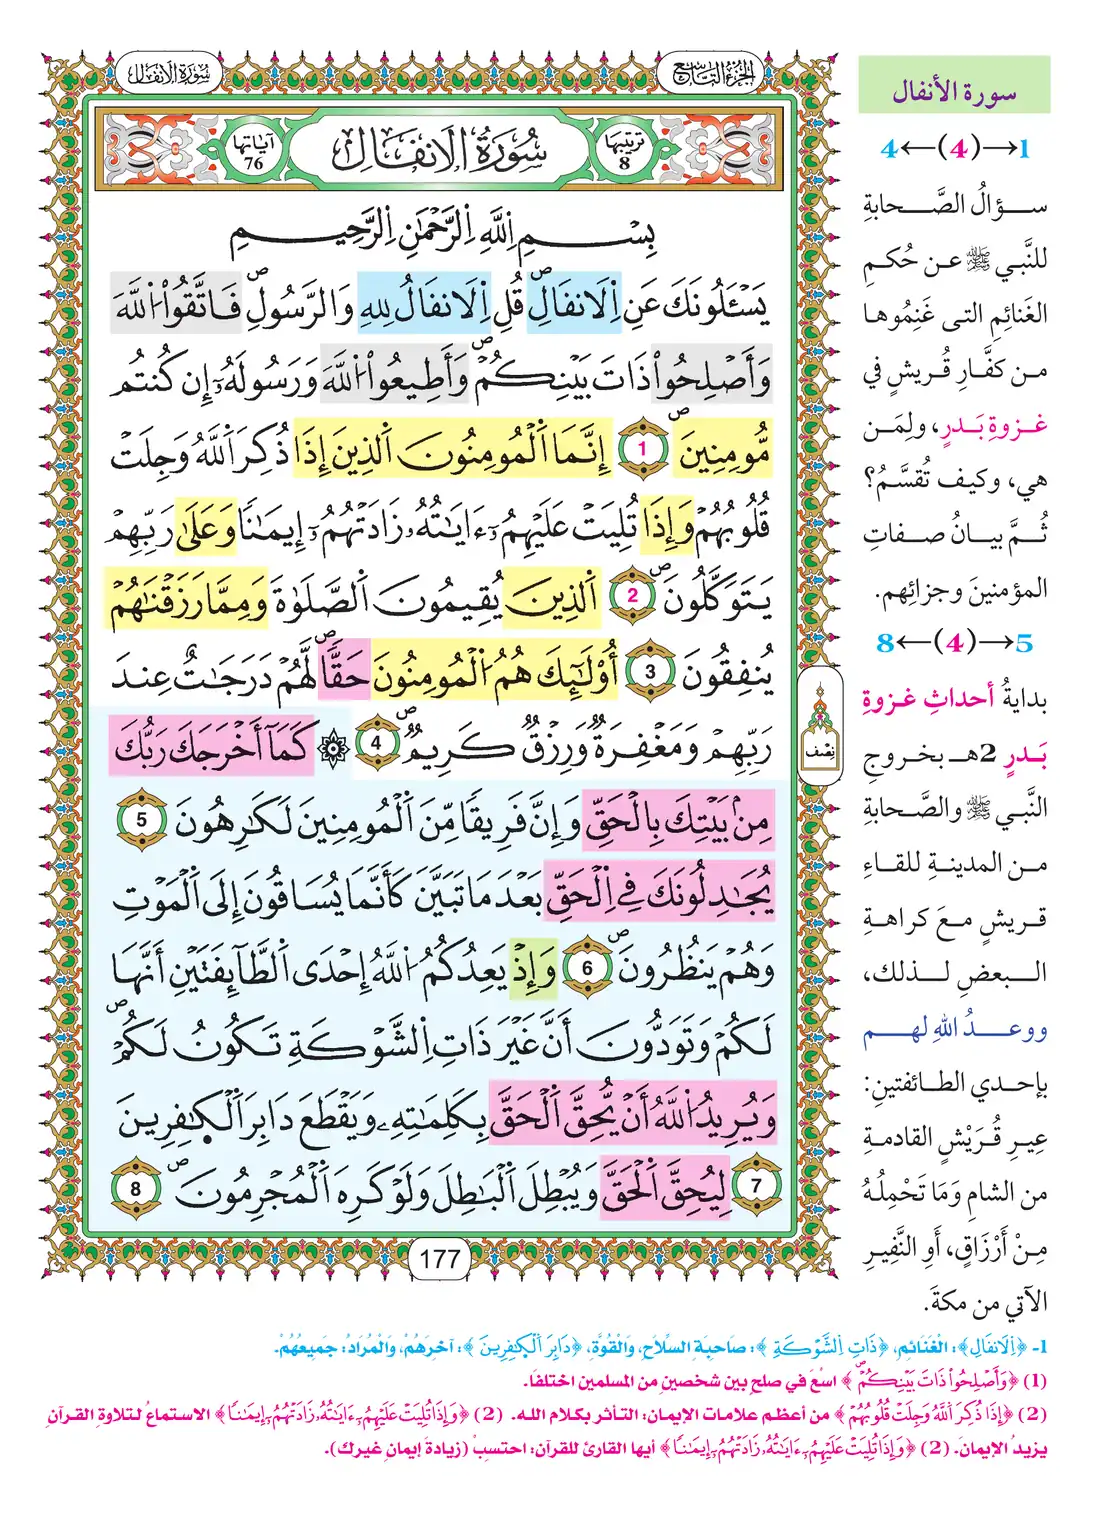 سُورَةُ الانفَالِ
الجُزْءُ التَّاسِعُ
سُورَةُ الانفَالِ
ترتيبها
8
آيَاتها
76
بِسْمِ اِ۬للَّهِ اِ۬لرَّحْمَٰنِ اِ۬لرَّحِيمِ
يَسْـَٔلُونَكَ عَنِ اِ۬لَانفَالِۖ قُلِ اِ۬لَانفَالُ لِلهِ وَالرَّسُولِۖ فَاتَّقُواْ اُ۬للَّهَ
وَأَصْلِحُواْ ذَاتَ بَيْنِكُمْۖ وَأَطِيعُواْ اُ۬للَّهَ وَرَسُولَهُۥٓ إِن كُنتُم
مُّومِنِينَۖ 1 إِنَّمَا اَ۬لْمُومِنُونَ اَ۬لذِينَ إِذَا ذُكِرَ اَ۬للَّهُ وَجِلَتْ
قُلُوبُهُمْ وَإِذَا تُلِيَتْ عَلَيْهِمُۥٓ ءَايَٰتُهُۥ زَادَتْهُمُۥٓ إِيمَٰناٗ وَعَلَىٰ رَبِّهِمْ
يَتَوَكَّلُونَۖ 2 اَ۬لذِينَ يُقِيمُونَ اَ۬لصَّلَوٰةَ وَمِمَّا رَزَقْنَٰهُمْ
يُنفِقُونَ 3 أُوْلَٰٓئِكَ هُمُ اُ۬لْمُومِنُونَ حَقّاٗۖ لَّهُمْ دَرَجَٰتٌ عِندَ
رَبِّهِمْ وَمَغْفِرَةٞ وَرِزْقٞ كَرِيمٞۖ 4 ۞ كَمَآ أَخْرَجَكَ رَبُّكَ
مِنۢ بَيْتِكَ بِالْحَقِّ وَإِنَّ فَرِيقاٗ مِّنَ اَ۬لْمُومِنِينَ لَكَٰرِهُونَ 5
يُجَٰدِلُونَكَ فِے اِ۬لْحَقِّ بَعْدَ مَا تَبَيَّنَ كَأَنَّمَا يُسَاقُونَ إِلَى اَ۬لْمَوْتِ
وَهُمْ يَنظُرُونَۖ 6 وَإِذْ يَعِدُكُمُ اُ۬للَّهُ إِحْدَى اَ۬لطَّآئِفَتَيْنِ أَنَّهَا
لَكُمْ وَتَوَدُّونَ أَنَّ غَيْرَ ذَاتِ اِ۬لشَّوْكَةِ تَكُونُ لَكُمْۖ
وَيُرِيدُ اُ۬للَّهُ أَنْ يُّحِقَّ اَ۬لْحَقَّ بِكَلِمَٰتِهِۦ وَيَقْطَعَ دَابِرَ اَ۬لْكٰ۪فِرِينَ
7 لِيُحِقَّ اَ۬لْحَقَّ وَيُبْطِلَ اَ۬لْبَٰطِلَ وَلَوْ كَرِهَ اَ۬لْمُجْرِمُونَۖ 8
نِصْف
177
سورة الأنفال
1→(4)←4
سؤالُ الصَّحابةِ
للنَّبي ﷺ عن حُكمِ
الغَنائِمِ التى غَنِمُوها
من كفَّارِ قُريشٍ في
غزوةِ بَدرٍ، ولِمَن
هي، وكيف تُقسَّمُ؟
ثُمَّ بيانُ صفاتِ
المؤمنينَ وجزائِهم.
5→(4)←8
بدايةُ أحداثِ غزوةِ
بَدرٍ 2هـ بخروجِ
النَّبي ﷺ والصَّحابةِ
من المدينةِ للقاءِ
قريشٍ معَ كراهةِ
البعضِ لذلك،
ووعدُ اللهِ لهم
بإحدي الطائفتينِ:
عِيرِ قُرَيْشٍ القادمةِ
من الشامِ وَمَا تَحْمِلُهُ
مِنْ أَرْزَاقٍ، أَوِ النَّفِيرِ
الآتي من مكةَ.
1- ﴿اِ۬لَانفَالِ﴾: الْغَنَائمِ، ﴿ذَاتِ اِ۬لشَّوْكَةِ﴾: صَاحِبَةِ السِّلَاحِ، وَالْقُوَّةِ، ﴿دَابِرَ اَ۬لْكٰ۪فِرِينَ﴾: آخِرَهُمْ، وَالْمُرَادُ: جَمِيعُهُمْ.
(1) ﴿وَأَصْلِحُواْ ذَاتَ بَيْنِكُمْۖ﴾ اسْعَ في صلحٍ بين شخصينِ من المسلمين اختلفَا.
(2) ﴿إِذَا ذُكِرَ اَ۬للَّهُ وَجِلَتْ قُلُوبُهُمْ﴾ من أعظمِ علامات الإيمان: التأثر بكلام الله. (2) ﴿وَإِذَا تُلِيَتْ عَلَيْهِمُۥٓ ءَايَٰتُهُۥ زَادَتْهُمُۥٓ إِيمَٰناٗ﴾ الاستماعُ لتلاوةِ القرآنِ
يزيدُ الإيمانَ. (2) ﴿وَإِذَا تُلِيَتْ عَلَيْهِمُۥٓ ءَايَٰتُهُۥ زَادَتْهُمُۥٓ إِيمَٰناٗ﴾ أيها القارئُ للقرآن: احتسِبْ (زيادةَ إيمانِ غيرِك).